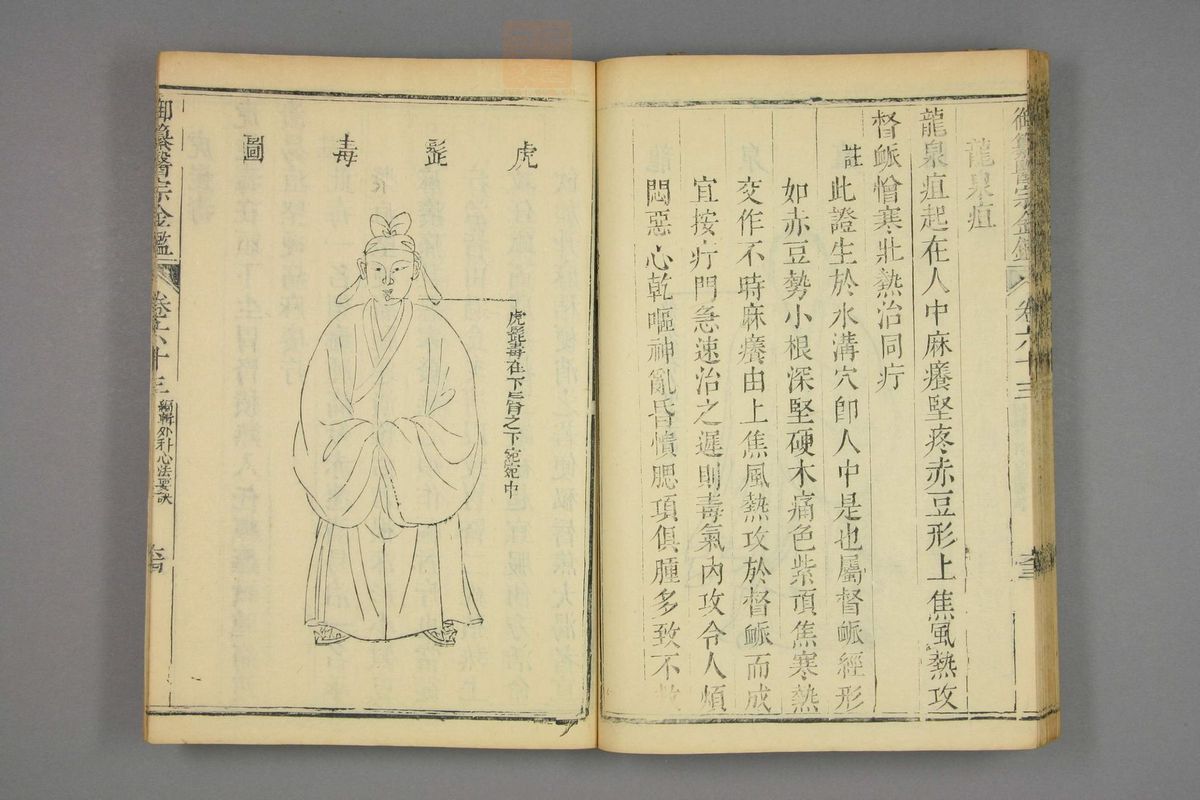 御纂醫宗金鑑
卷六十三
龍泉疽
龍泉疽起在人中麻癢堅疼赤豆形上焦風熱攻
督脈憎寒壯熱治同疔
註 此證生於水溝穴卽人中是也屬督脈經形
如赤豆勢小根深堅硬木痛色紫頂焦寒熱
交作不時麻癢由上焦風熱攻於督脈而成
宜按疔門急速治之遲則毒氣內攻令人煩
悶惡心乾嘔神亂昏憒腮項俱腫多致不救
虎髭毒圖
虎髭毒在下唇之下宛宛中
御纂醫宗金鑑
卷六十三
編輯外科心法要訣